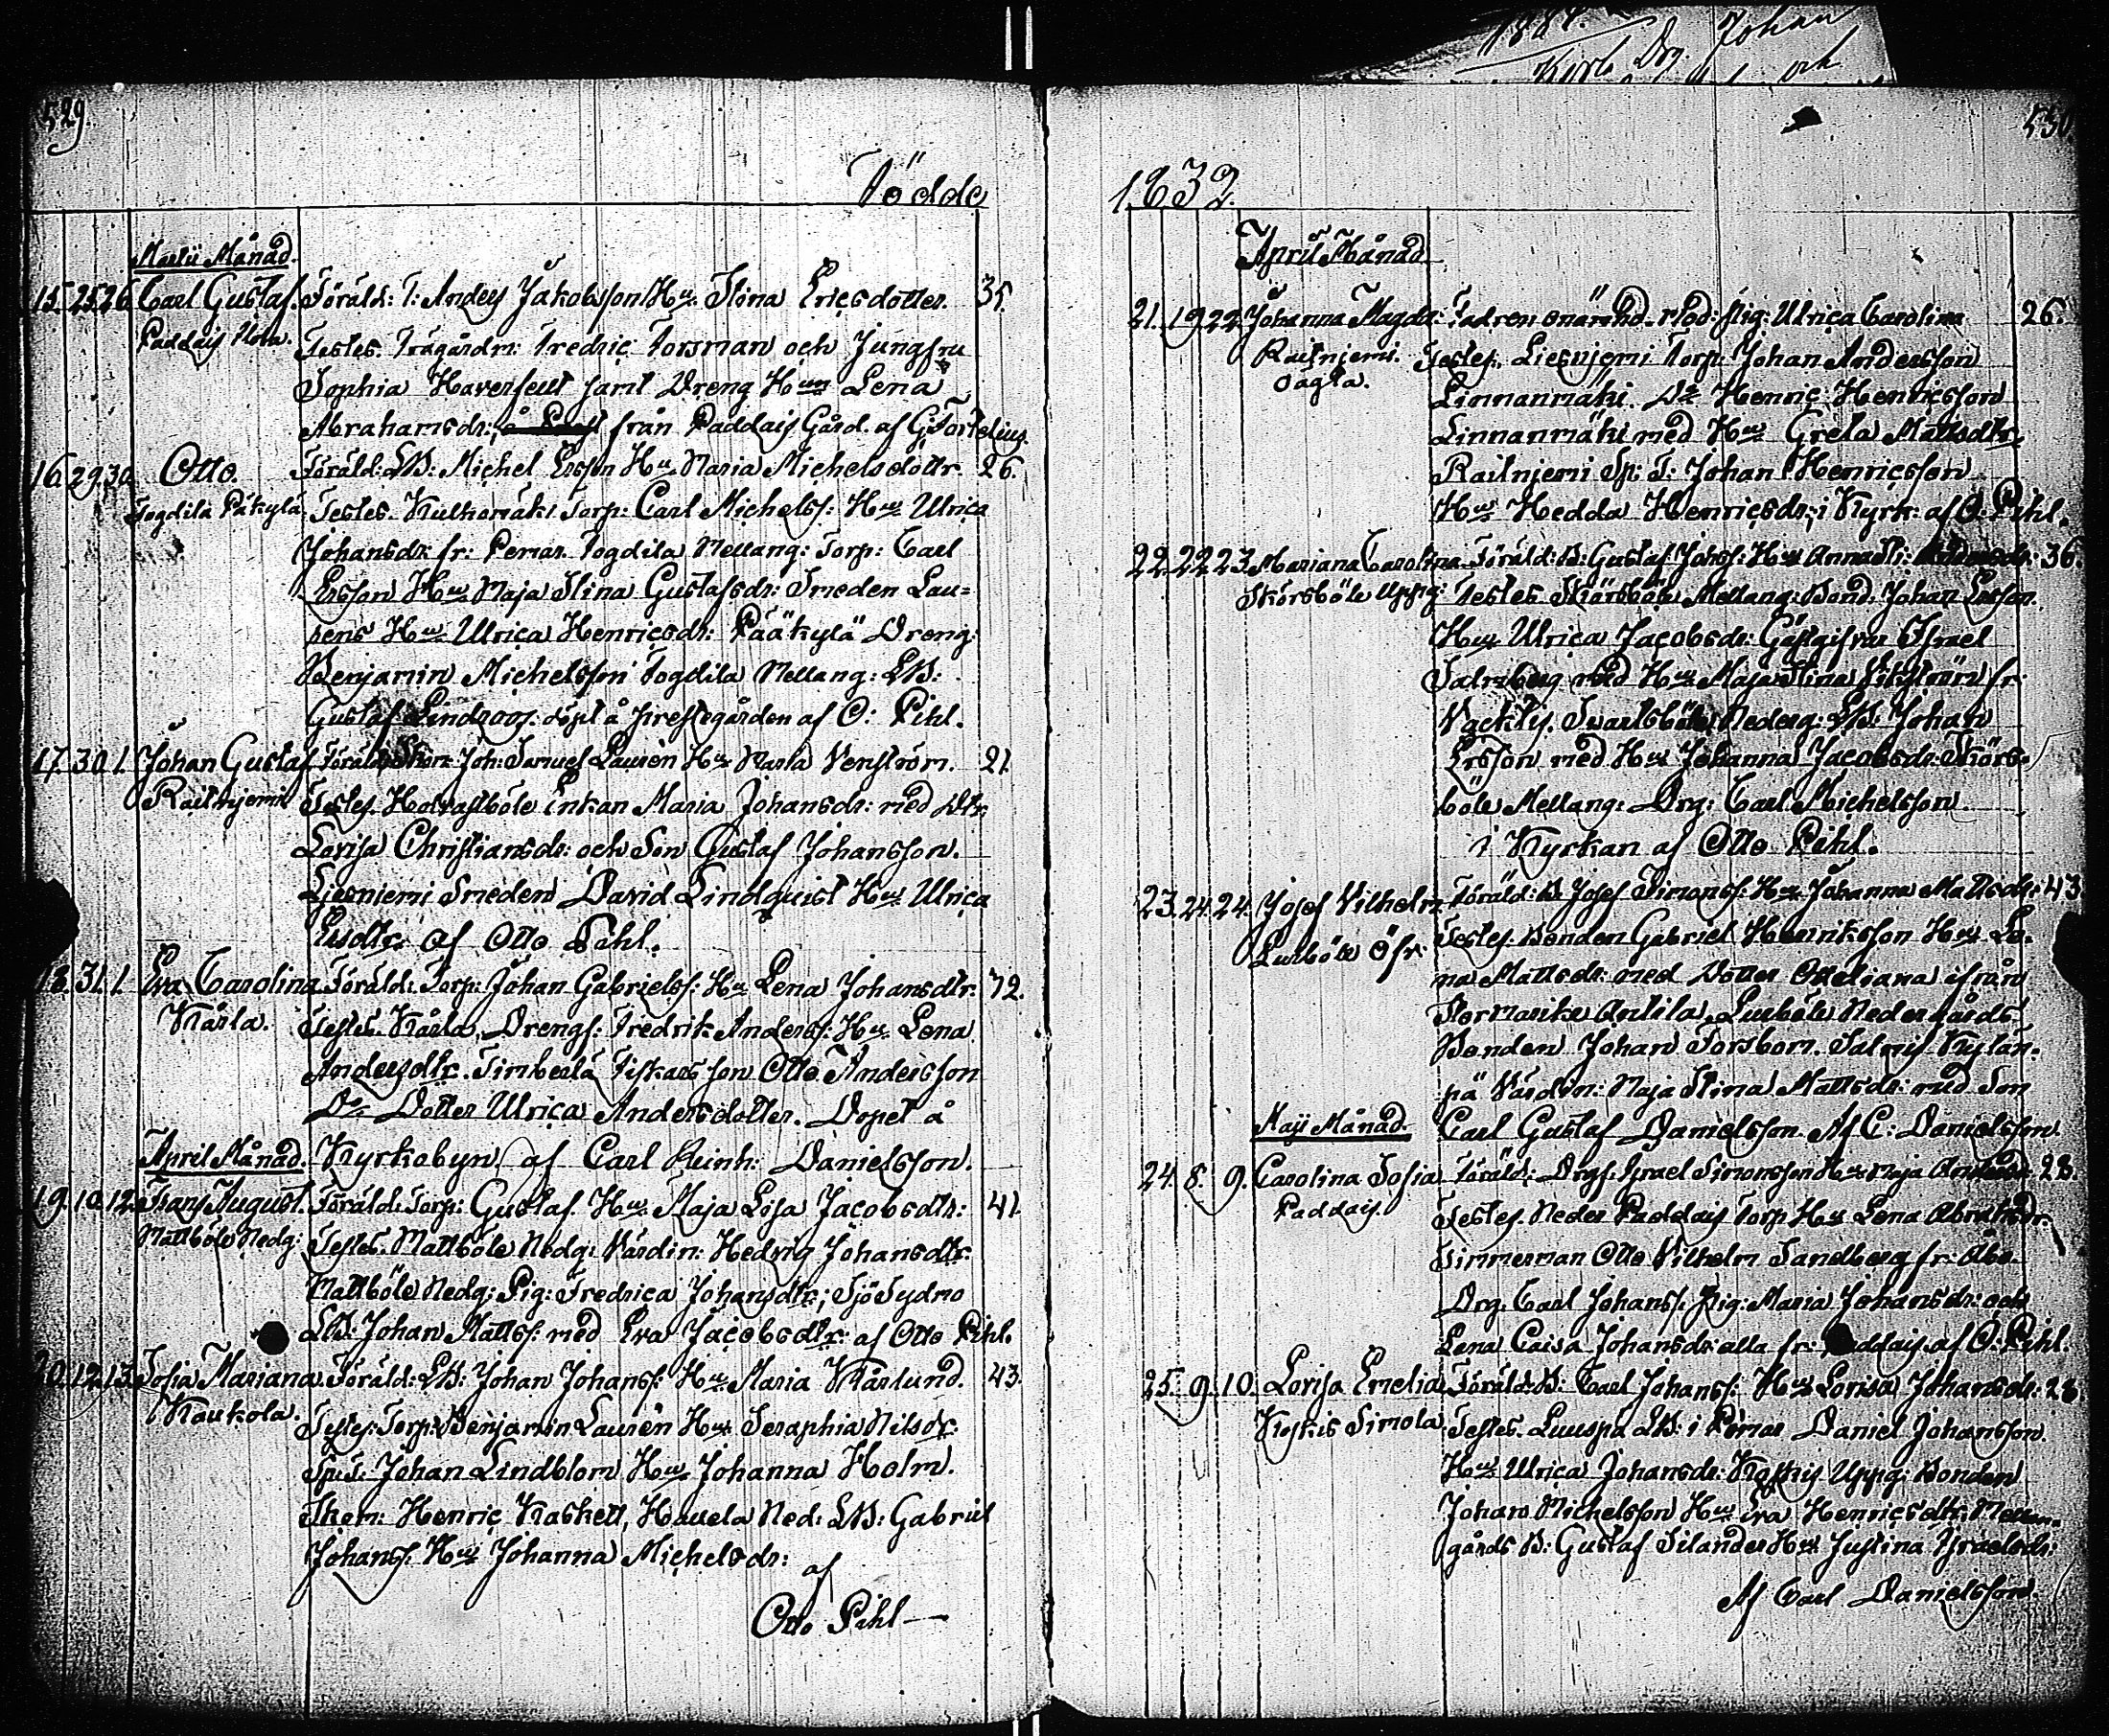 1884.
Johan
Drg.
och
529.
Födde
Martii Månad.
15. 25 26 Carl Gustaf. Föräld: T: Anders Jakobsson Hu. Stina Ericsdotter. 35.
Paddais
Testes. Trägårdm: Fredric Forsman och Jungfru
Sophia samt Dreng Hun Lena
Abrahamsdr: från Paddais Gård. af G. Fortelius.
16. 29. 30. Otto. Föräld: LB: Michel Ersson Hu Maria Michelsdottr. 26.
Togdila Päkylä Testes. Torp: Carl Michelss: Hu Ulrica
Johansdr: fr: Pemar. Togdila Mellang: Torp: Carl
Ersson Hu Maja Stina Gustafsdr: Smeden Lau=
rens Hu Ulrica Henricsdr: Pääkylä Dreng:
Benjamin Michelsson Togdila Mellang: LB:
Gustaf Lindroos. döpt å prestegården af O: Pihl.
17. 30 1. Johan Gustaf Föräld: Skom: Joh: Samuel Laurén Hu Maria Venström. 21.
Railnjemi Testes. Inkan Maria Johansdr: med Dtr.
Lovisa Christiansdr: och Son Gustaf Johansson.
Liesniemi Smeden David Lindquist Hu Ulrica
af Otto Pihl.
18. 31. 1. Eva Carolina Föräld: Torp: Johan Gabrielss: Hu Lena Johansdtr. 42.
Kärla. Testes. Kärla, Drengs: Fredrik Anderss: Hu. Lena
Andersdtr. Simberlä Fiskars son Otto Andersson
Do Dotter Ulrica Andersdotter. Döpet å
April Månad. Kyrkobyn af Carl Reinh: Danielsson.
19. 10. 12. Frans August. Föräld: Torp: Gustaf. Hu Maja Lisa Jacobsdtr: 41.
Mattböle Nedg: Testes. Mattböle Nedg: Värdin: Hedvig Johansdtr:
Mattböle Nedg: Pig: Fredrica Johansdtr; Sjö Sydmo
LB: Johan Mattss: med Eva Jacobsdtr: af Otto Pihl.
20. 12. 13. Sofia Mariana. Föräld: LB: Johan Johanss: Hu. Maria Kårlund. 43.
Kaukola. Testes: Torp: Benjamin Laurén Hu Seraphia Nilsdr:
Johan Lindblom Hu Johanna Holm.
Skom: Henric Kaskell, Havela Ned: LB: Gabriel
Johanss: Hu Johanna Michelsdr:
af
Otto Pihl
530
1832.
April Månad.
21. 19 22. Johanna Magda: Fadren onämnd. Mod: pig: Ulrica Carolina 26.
Railnjemi Testes. Liesnjemi Torp: Johan Andersson
oägta. Linnanmäki Do Henric Henricsson
Linnanmäki med Hu Greta Mattsdtr.
Railnjemi Sp: T: Johan Henricsson
Hu Hedda Henricsdr; i Kyrk: af O. Pihl.
22. 22 23. Mariana Carolina Föräld: B: Gustaf Johss: Hu 36.
Skörsböle Uppg: Testes Skörsböle Mellang: Bond: Johan Ersson.
Hu Ulrica Jacobsdr: Gästgifvar Israel
Salmberg med Hu Maja Stina fr:
Svartsböle Nederg: LB: Johan
Ersson med Hu Johanna Jacobsdr: Skörs-
böle Mellang: Drg: Carl Michelsson
i Kyrkan af Otto Pihl.
23. 24. 24. Josef Vilhelm Föräld: B Josef Simonss: Hu Johanna Mattsdr: 43.
Testes. Bonden Gabriel Henriksson Hu Le-
na Mattsdr: med Dotter ifrån
Antila, Lurböle Nedergårds
Bonden Johan Forsbom. Salmis Kylän-
pä Värdin: Maja Stina Mattsdr: med Son
Maji Månad. Carl Gustaf Danielsson. Af C: Danielsson.
24. 8. 9. Carolina Sofia Föräld: Drgs: Israel Simonsson Hu Maja 28.
Paddais. Testes. Neder Paddais Torp Hu Lena Abrahdr.
Timmerman Otto Vilhelm Sandberg fr: Åbo.
Drg. Carl Johanss: pig: Maria Johansdr: och
Lena Caisa Johansdr: alla fr: Paddais. af O: Pihl.
25. 9. 10. Lovisa Emelia Föräld: B: Carl Johanss: Hu Lovisa Johansdr: 28.
Koskis Simola Testes. LB: i Pemar Daniel Johansson.
Hu Ulrica Johansdr: Koskis Uppg: Bonden
Johan Michelsson Hu Eva Henricsdtr: Mellan-
gårds B: Gustaf Silander Hu Justina Israelsdr:
Af Carl Danielsson.